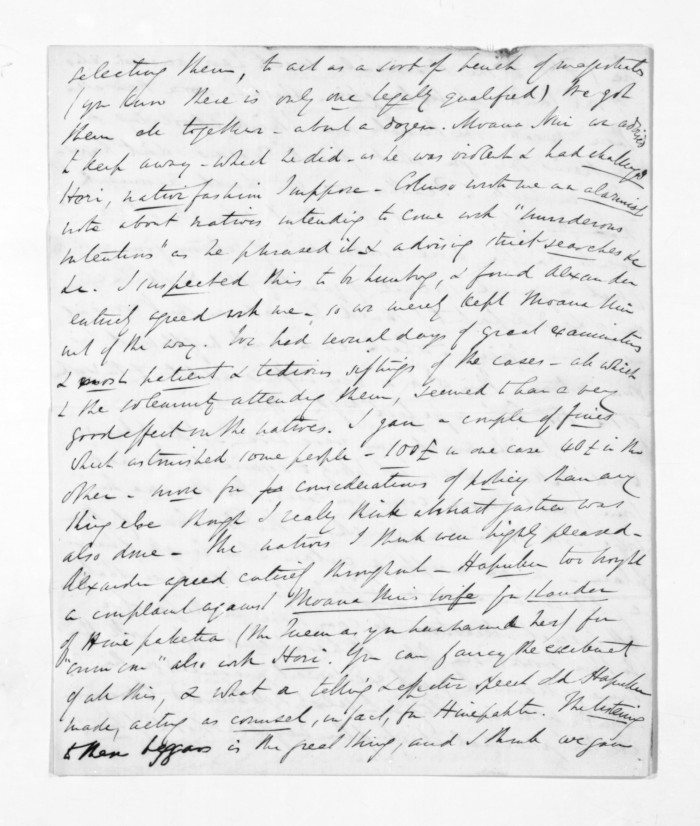 selecting them, to act as a sort of bench of magistrates
(you know there is only one legally qualified) We got
them all together - about a dozen. Moana Nui we advised
to keep away - which he did - as he was violent & had challenged
Hori, native fashion I suppose - Colenso wrote me an alarmist
note about natives intending to come with "murderous
intentions" as he phrased it & advising strict searches &c
&c. I suspected this to be humbug, & found Alexander
entirely agreed with me - so we merely kept Moana Nui
out of the way. We had several days of great examinations
& most patient & tedious siftings of the cases - all which
& the solemnity attending them, seemed to have a very
good effect on the natives. I gave a couple of fines
which astonished some people - 100£ in one case 40£ in the
other - more for considerations of policy than any
thing else though I really think abstract justice was
also done - The natives I think were highly pleased -
Alexander agreed entirely throughout - Hapuku too brought
a complaint against Moana Nui's wife for slander
of Hine paketia (the Queen as you husband her) for
"crim con" also with Hori. You can fancy the excitement
of all this, & what a telling & effective speech old Hapuku
made, acting as counsel, in fact, for Hinepaketia. The listening
to these beggars is the great thing, and I think we gave